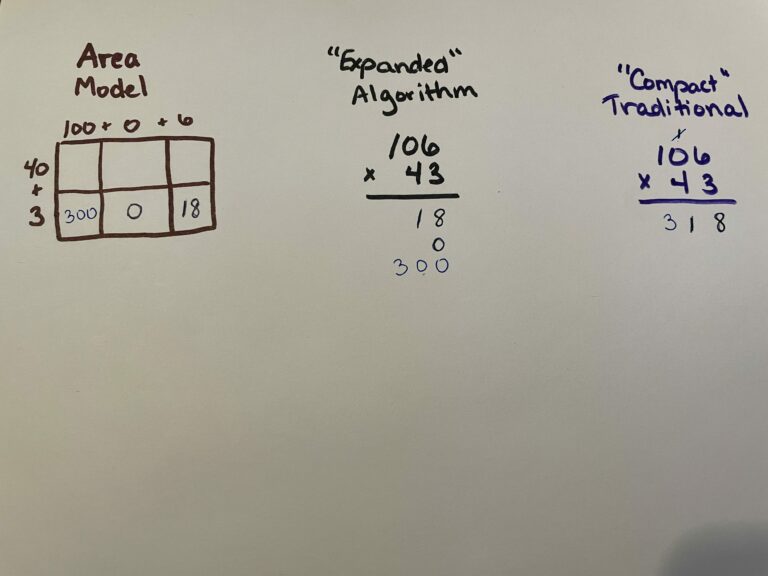 Area
Model
100 + 0 + 6
40
+
3
300 0 18
"Expanded"
Algorithm
106
x 43
18
0
300
"Compact"
Traditional
1
106
x 43
318